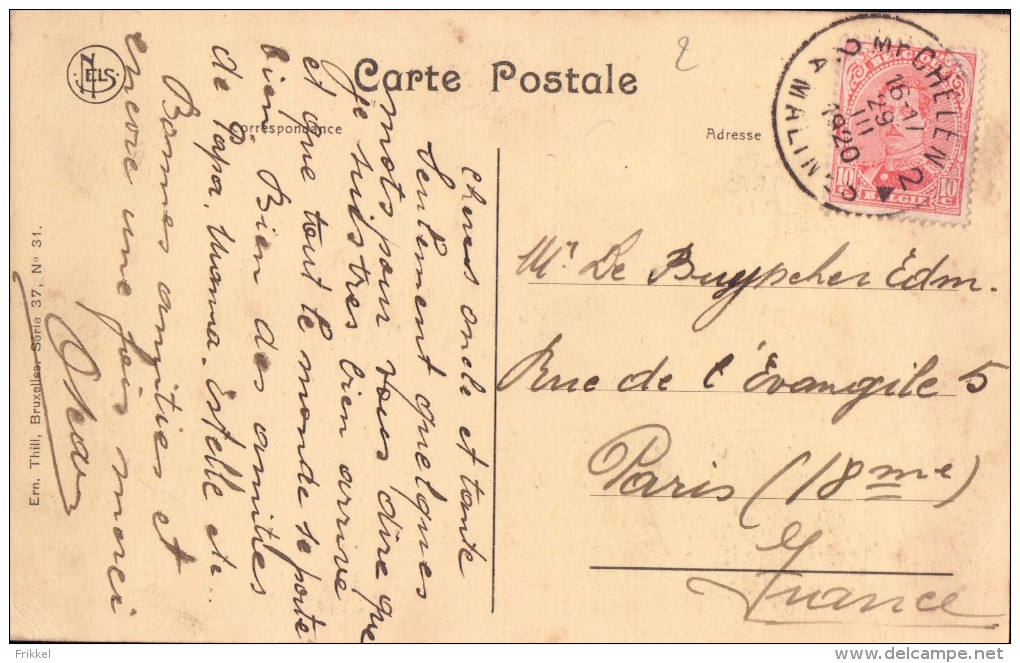 NELS
Carte Postale
Correspondance
Adresse
2
MECHELEN 2
16-17
29
III
1920
MALINES 2
BELGIQUE
10 10
c
BELGIE
Chers oncle et tante
Seulement quelques
mots pour vous dire que
je suis tres bien arrive
et que tout le monde se porte
bien. Bien des amities
de Papa, Mama. Estelle et
Bonnes amities et
encore une fois merci
Oscar
Mr De Buypscher Edm.
Rue de l'Evangile 5
Paris (18me)
France
Ern. Thill, Bruxelles, Série 37, No 31.
Frikkel
delcampe.net